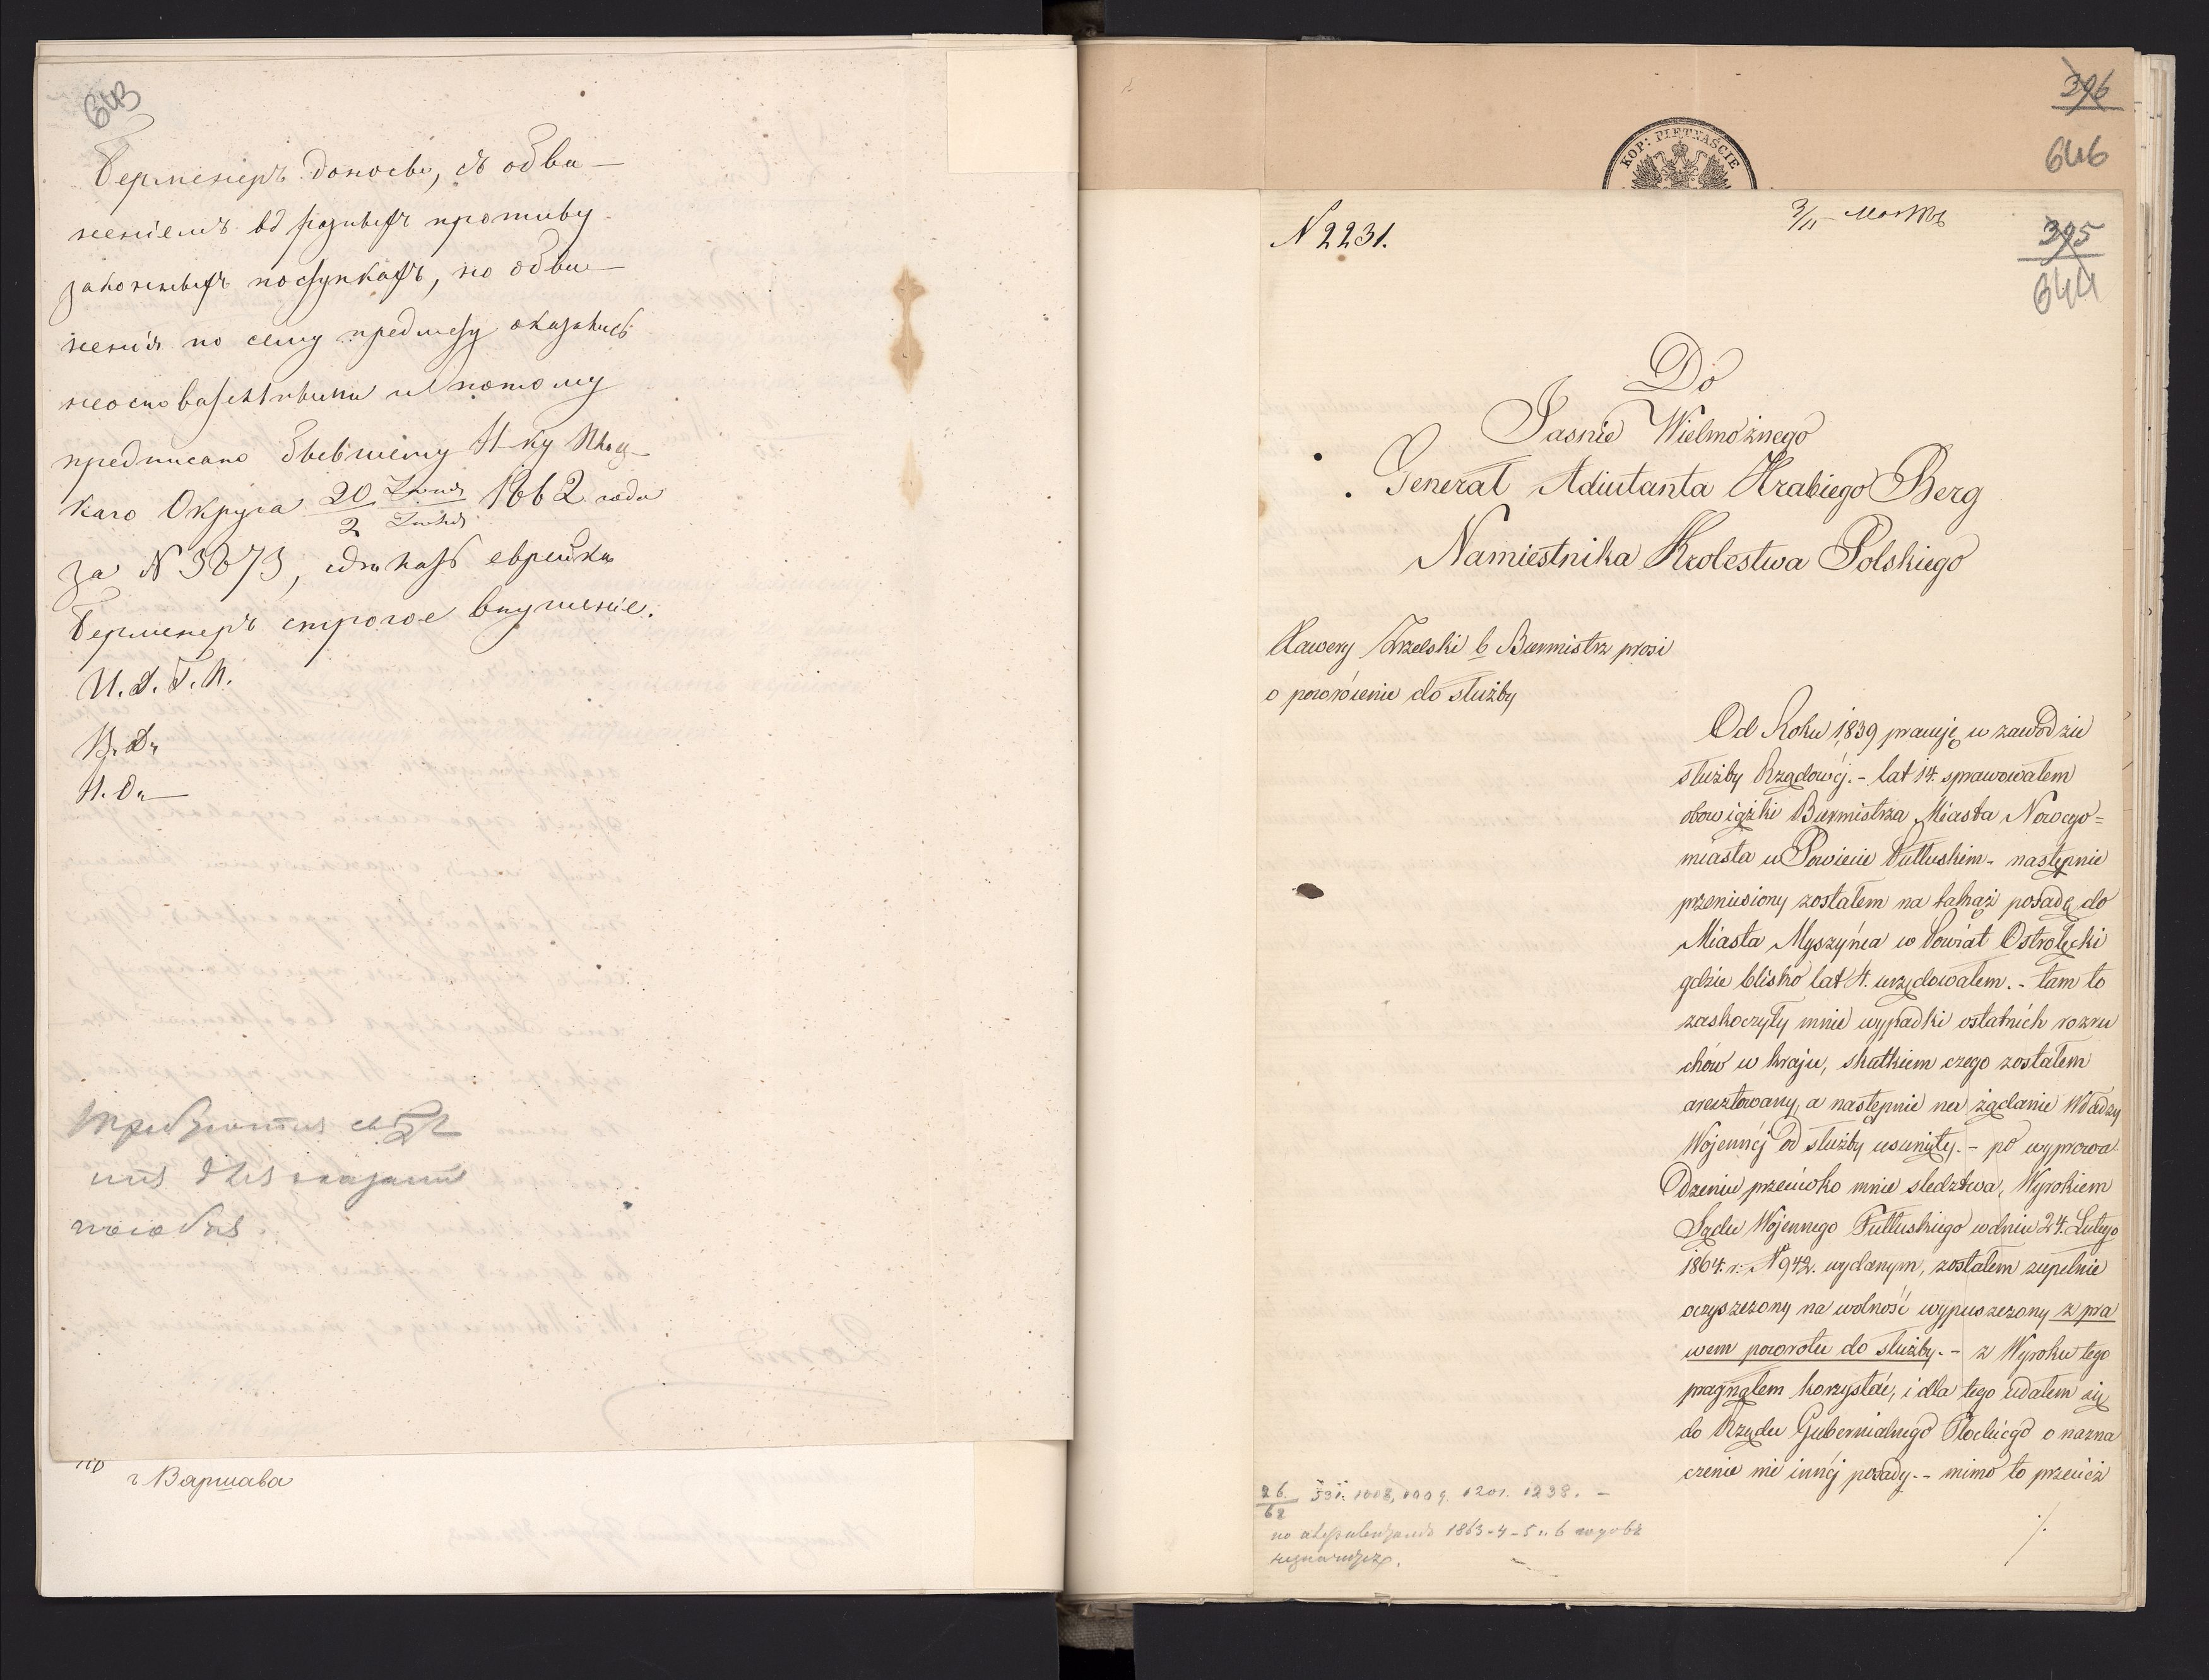 643
Берменеръ доносъ, съ обви-
неніемъ въ разныхъ противу-
законныхъ поступкахъ, но обви-
ненія по сему предмету оказались
неосновательными и потому
предписано бывшему Н-ку Плоц-
каго Округа 20 Іюня / 2 Іюля 1862 года
за N 3873, сдѣлать еврейкѣ
Берменеръ строгое внушеніе.
И. д. Г. П.
В. Д.
Н. О.
г. Варшава
396
646
KOP: PIĘTNAŚCIE
N 2231.
3/11
395
644
Do
Jaśnie Wielmożnego
Generał Adiutanta Hrabiego Berg
Namiestnika Krolestwa Polskiego
Xawery Strzelski b Burmistrz prosi
o powrócenie do służby
Od Roku 1839 pracuję w zawodzie
służby Rządowéj. - lat 14. sprawowałem
obowiązki Burmistrza Miasta Nowego=
miasta w Powiecie Pułtuskim - następnie
przeniesiony zostałem na takąż posadę do
Miasta Myszyńca w Powiat Ostrołęcki
gdzie blisko lat 4. urzędowałem. - tam to
zaskoczyły mnie wypadki ostatnich rozru
chów w kraju, skutkiem czego zostałem
aresztowany, a następnie na żądanie Władzy
Wojennéj od służby usunięty. - po wyprowa
dzeniu przeciwko mnie śledztwa, Wyrokiem
Sądu Wojennego Pułtuskiego w dniu 24. Lutego
1864. r. N 942. wydanym, zostałem zupełnie
oczyszczony na wolność wypuszczony z pra
wem powrotu do służby. - z Wyroku tego
pragnąłem korzystać, i dla tego udałem się
do Rządu Gubernialnego Płockiego o nazna
czenie mi innéj posady. - mimo to przecież
./.
26/62 531. 1008, 1009. 1201. 1238. -
1863-4-5 и 6